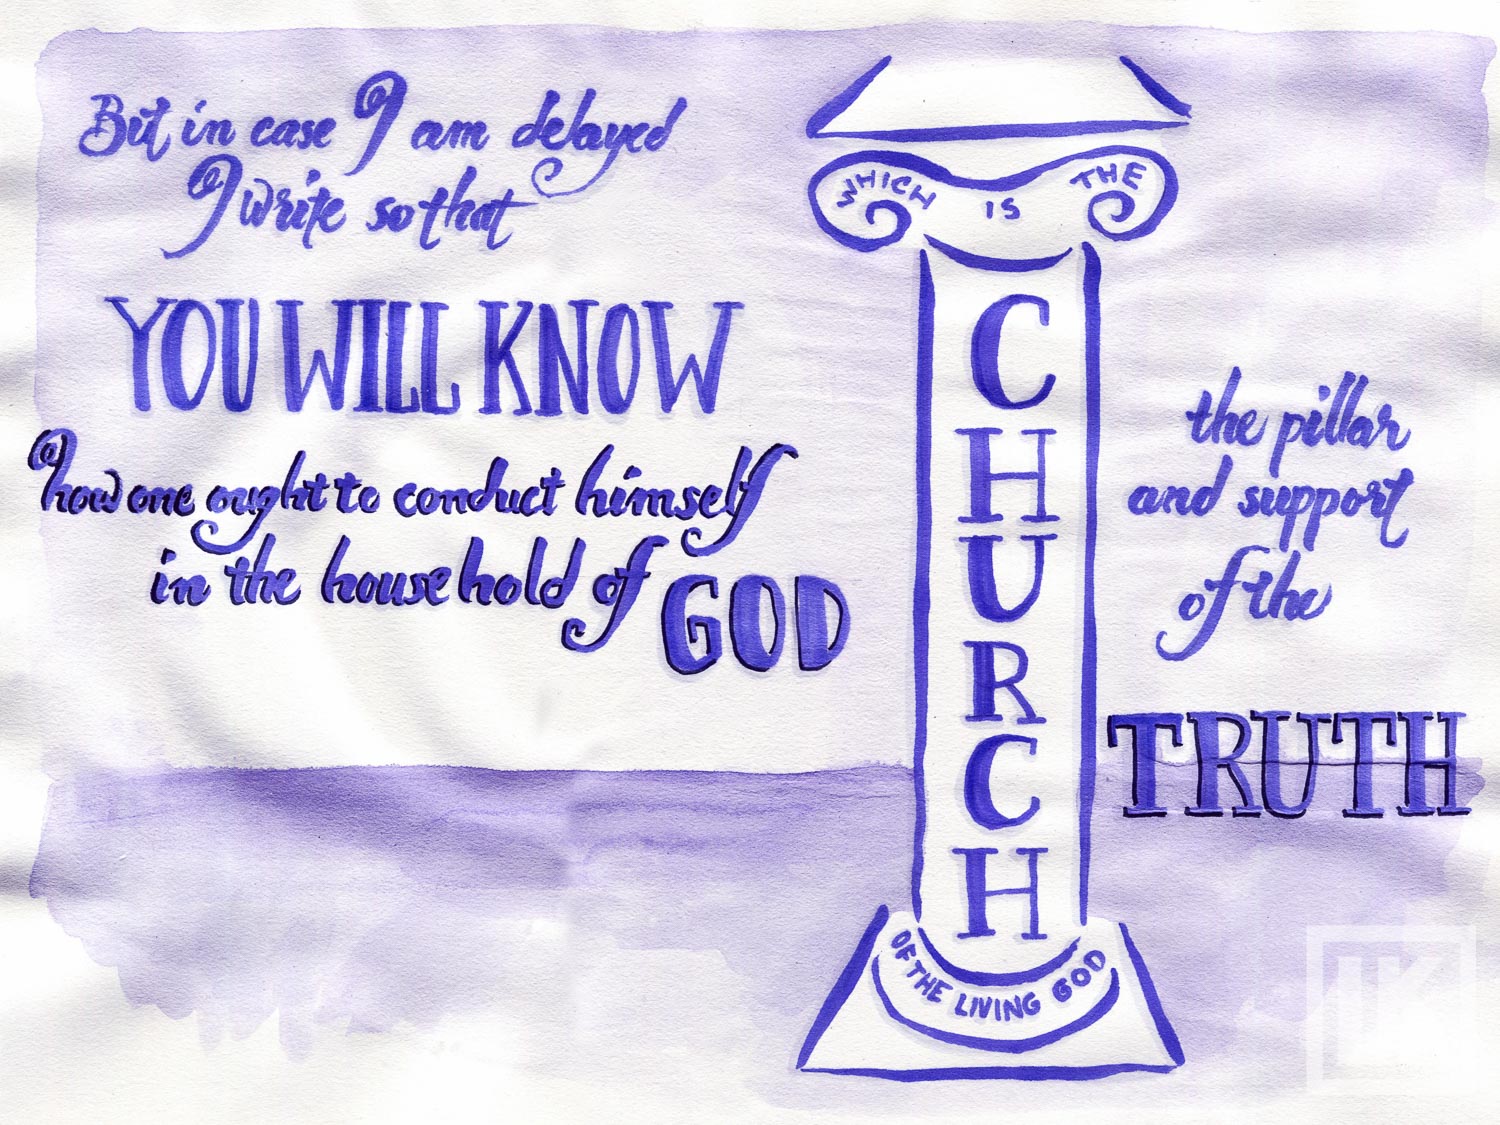 But in case I am delayed
I write so that
YOU WILL KNOW
how one ought to conduct himself
in the household of GOD
WHICH IS THE
CHURCH
OF THE LIVING GOD
the pillar
and support
of the
TRUTH